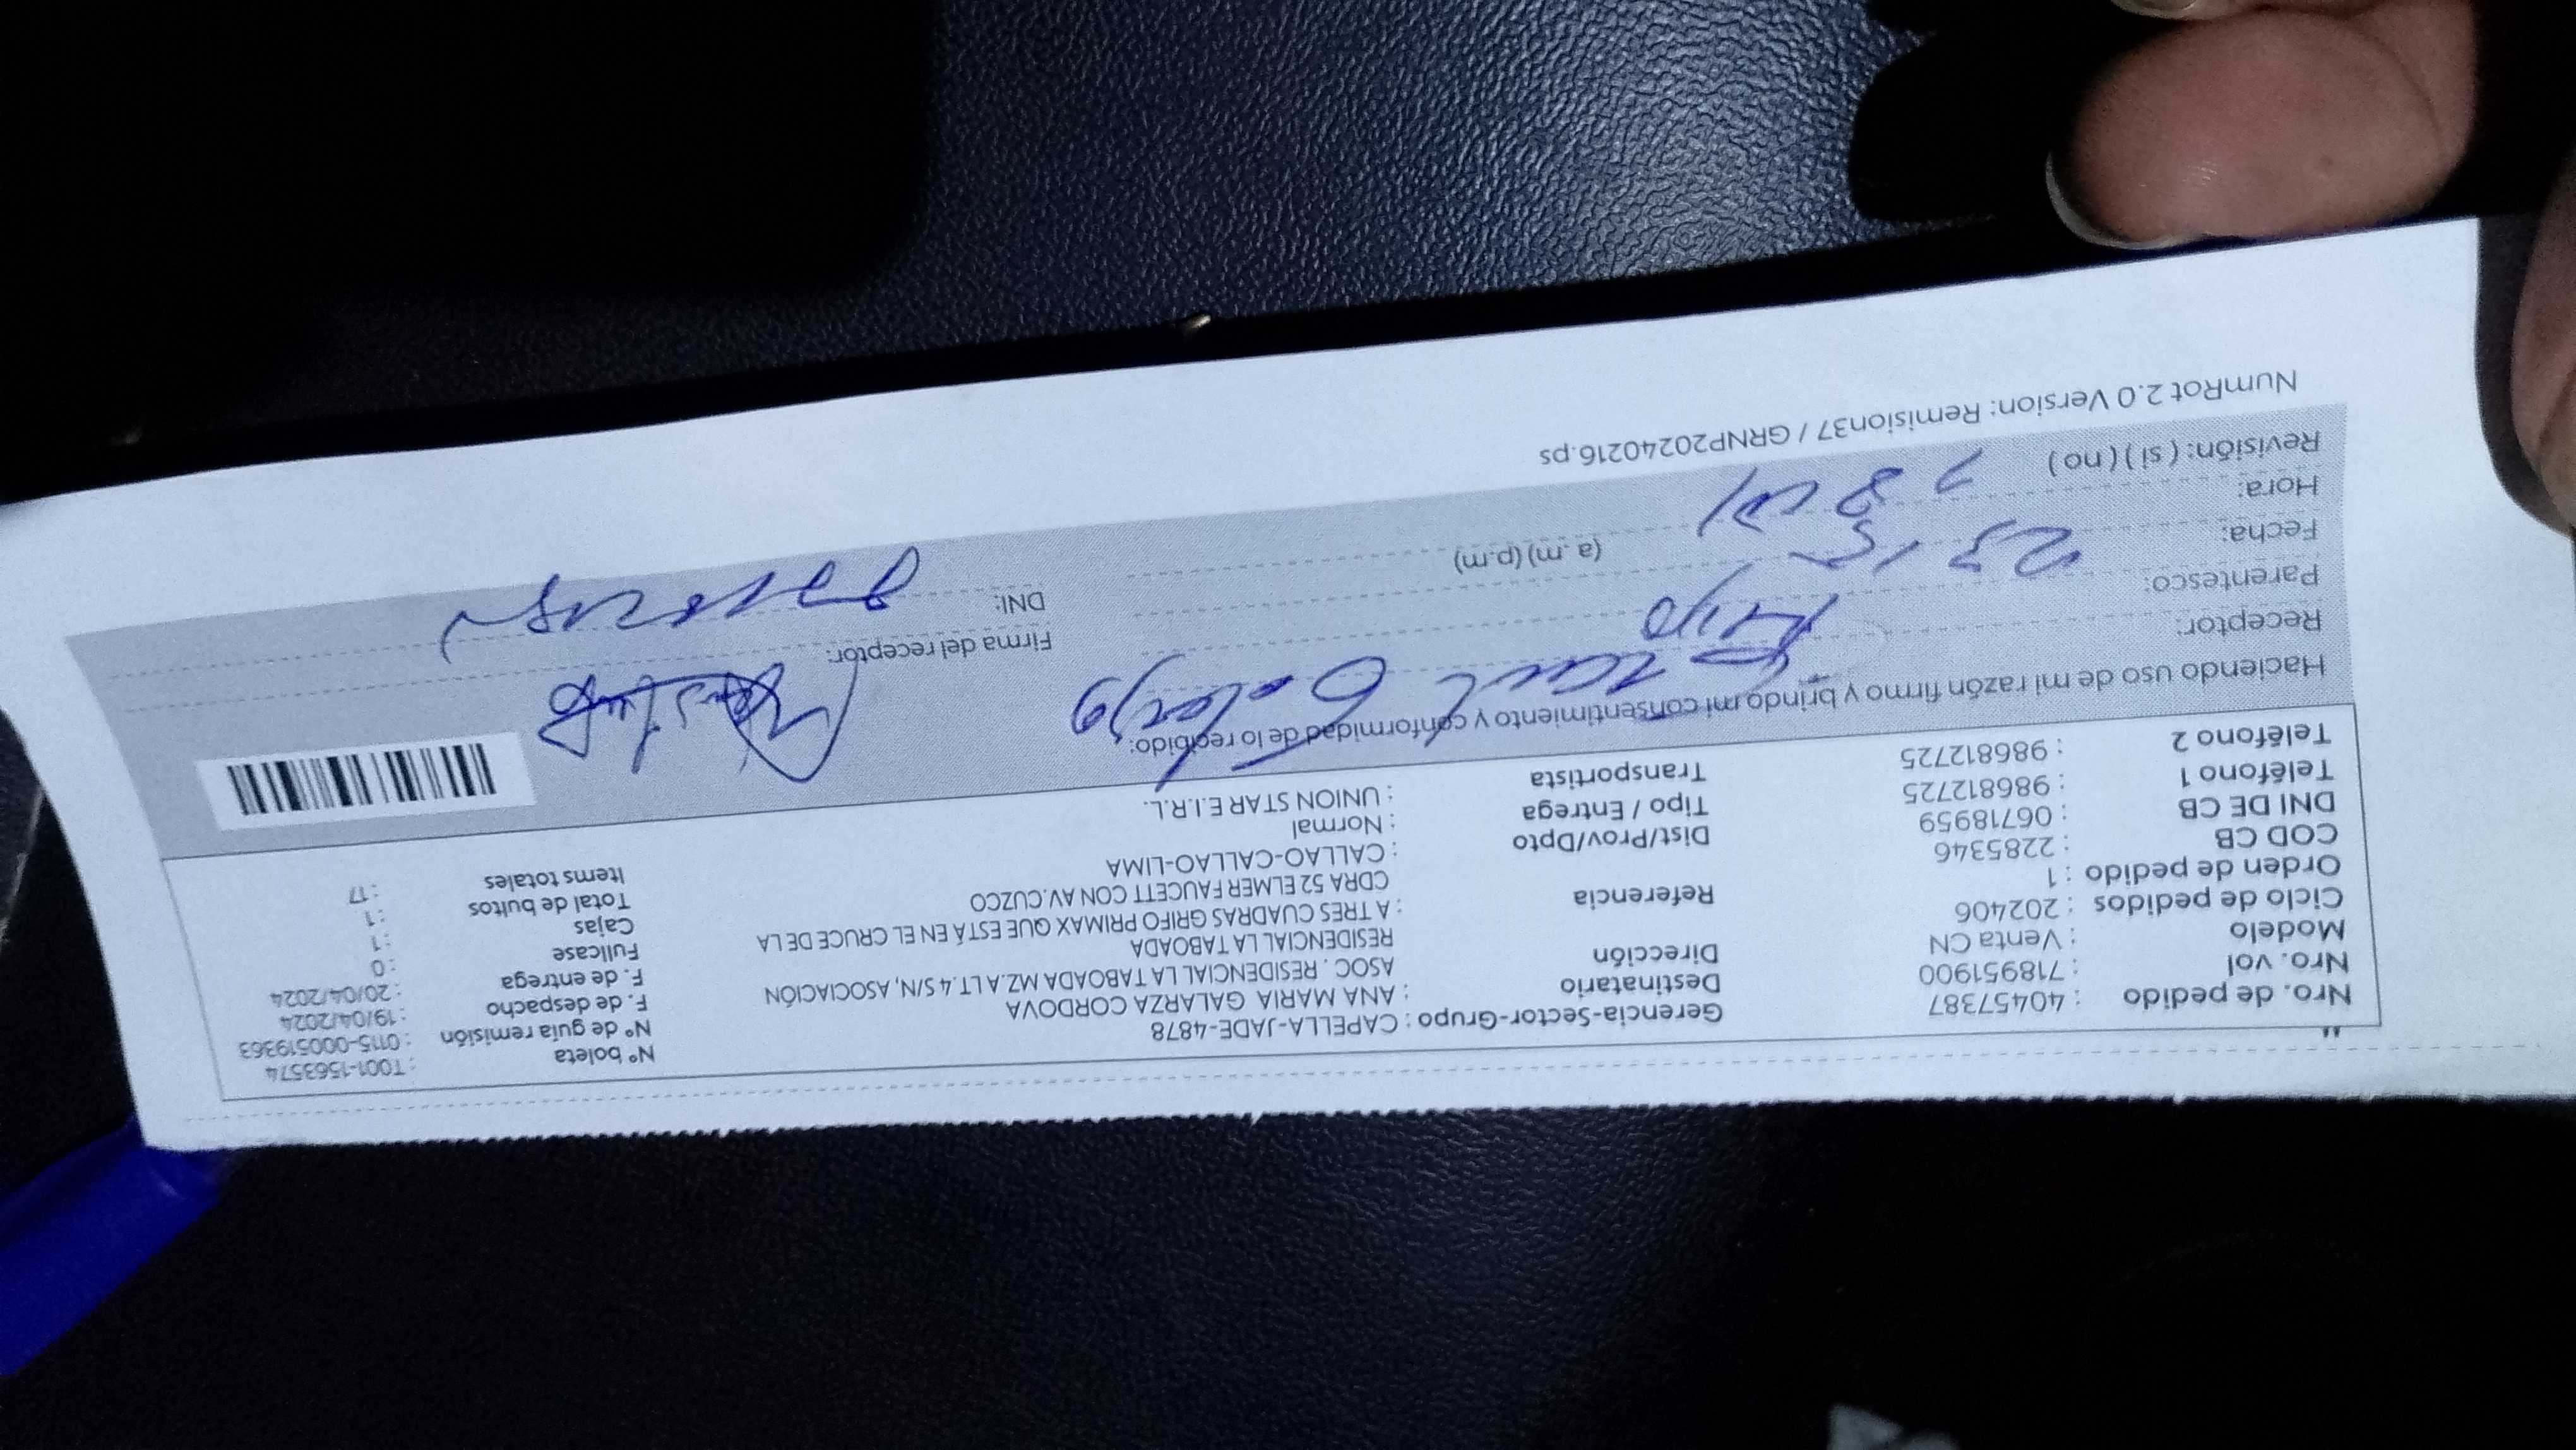 Nro. de pedido : 40457387
Nro. vol : 718951900
Modelo : Venta CN
Ciclo de pedidos : 202406
Orden de pedido : 1
COD CB : 2285346
DNI DE CB : 06718959
Teléfono 1 : 986812725
Teléfono 2 : 986812725
Gerencia-Sector-Grupo : CAPELLA-JADE-4878
Destinatario : ANA MARIA GALARZA CORDOVA
Dirección ASOC. RESIDENCIAL LA TABOADA MZ.A LT.4 S/N, ASOCIACIÓN
RESIDENCIAL LA TABOADA
Referencia : A TRES CUADRAS GRIFO PRIMAX QUE ESTÁ EN EL CRUCE DE LA
CDRA 52 ELMER FAUCETT CON AV.CUZCO
Dist/Prov/Dpto : CALLAO-CALLAO-LIMA
Tipo / Entrega : Normal
Transportista : UNION STAR E.I.R.L.
Nº boleta : T001-1563574
Nº de guía remisión : 0115-000519363
F. de despacho : 19/04/2024
F. de entrega : 20/04/2024
Fullcase : 0
Cajas : 1
Total de bultos : 1
Items totales : 17
Haciendo uso de mi razón firmo y brindo mi consentimiento y conformidad de lo recibido:
Receptor:
Parentesco:
Fecha:
Hora: (a.m) (p.m)
Revisión: (si) (no)
Firma del receptor:
DNI:
NumRot 2.0 Version: Remision37 / GRNP20240216.ps